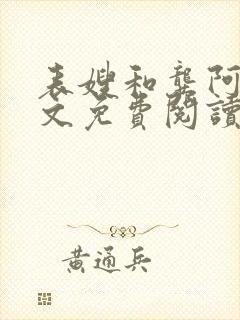 表嫂和龔阿
文免費閱讀
黃通兵